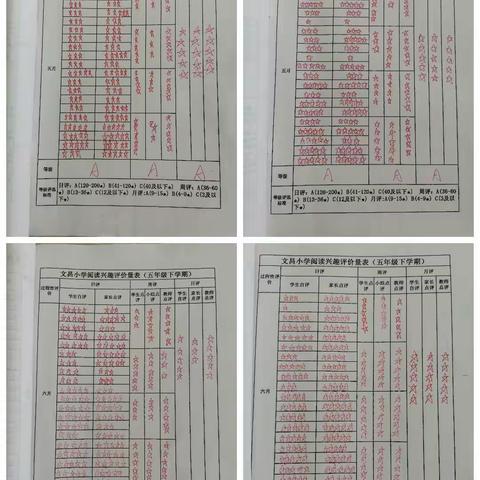 五月
等级
A A A
等级评估标准
日评：A(120-200★) B(41-120★) C(40及以下★) 周评：A(36-60★) B(13-36★) C(12及以下★) 月评：A(9-15★) B(4-9★) C(3及以下★)
五月
等级
A A A
等级评估标准
日评：A(120-200★) B(41-120★) C(40及以下★) 周评：A(36-60★) B(13-36★) C(12及以下★) 月评：A(9-15★) B(4-9★) C(3及以下★)
文昌小学阅读兴趣评价量表（五年级下学期）
过程性评价
日评 周评 月评
学生自评 家长点评 学生点评 小组点评 教师点评 学生自评 家长点评 教师点评
六月
文昌小学阅读兴趣评价量表（五年级下学期）
过程性评价
日评 周评 月评
学生自评 家长点评 学生点评 小组点评 教师点评 学生自评 家长点评 教师点评
六月